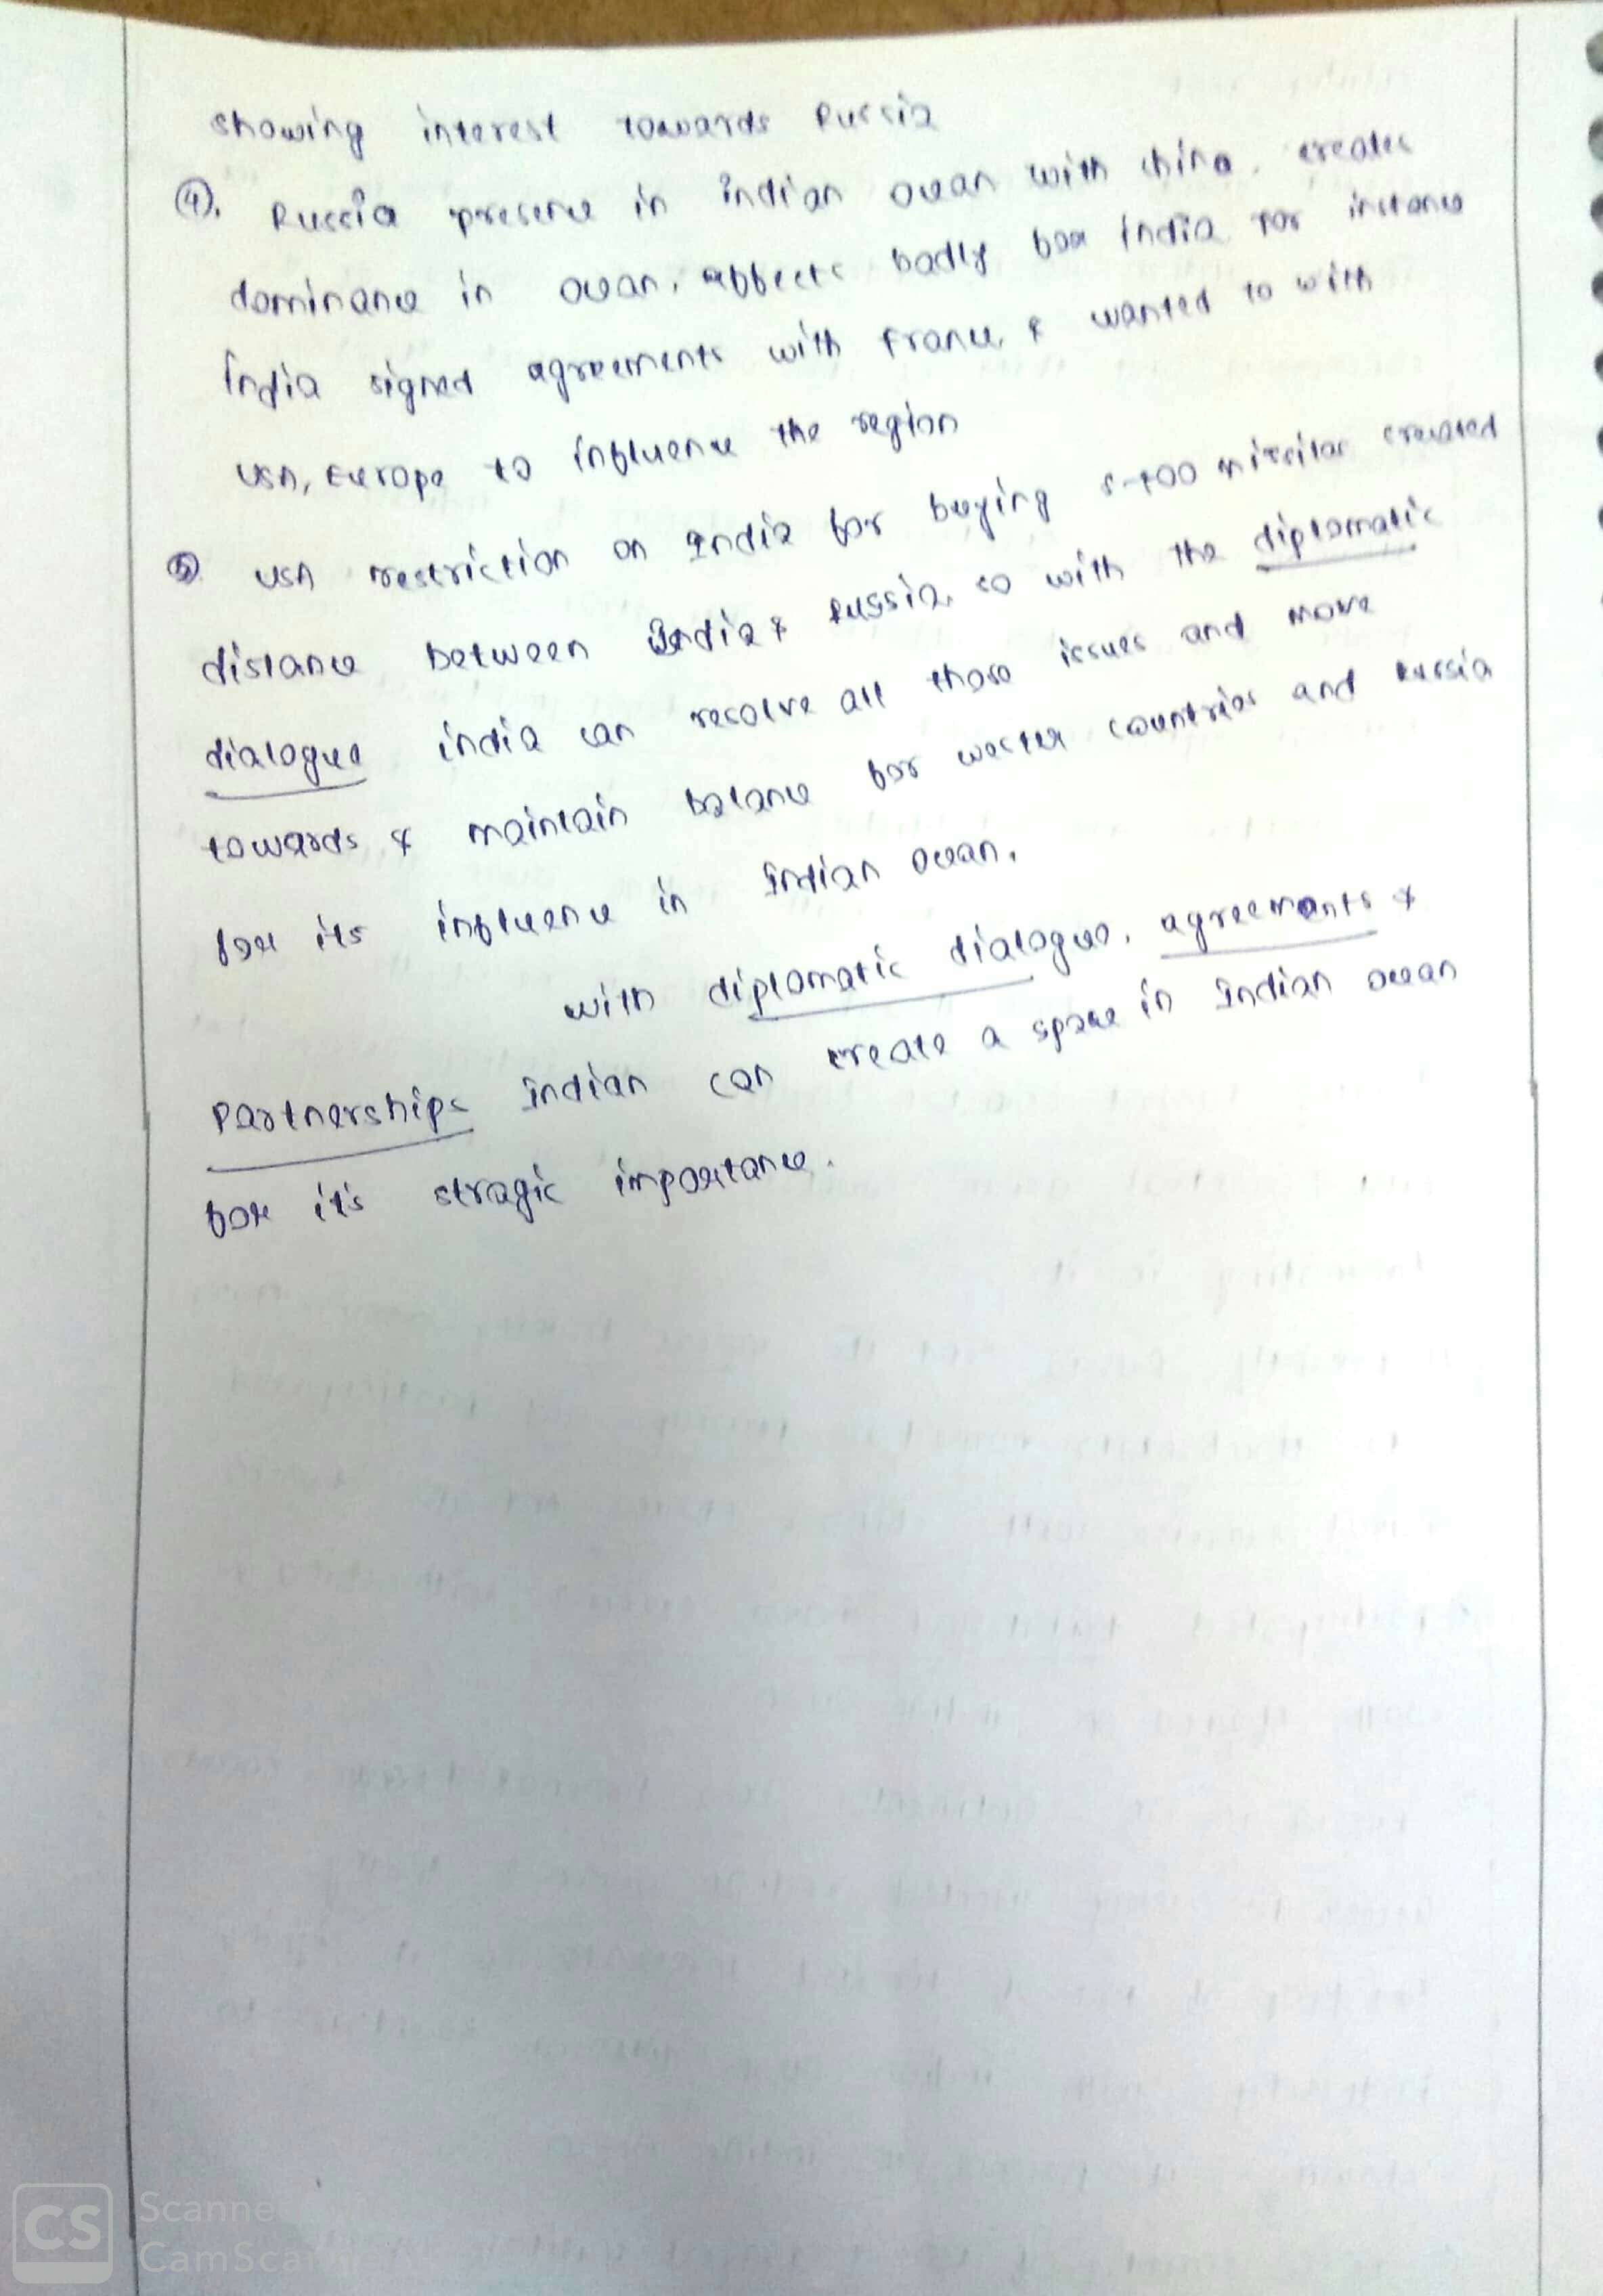 showing interest towards Russia
④. Russia presence in indian ocean with china. creates
dominance in ocean, affects badly for India for instance
India signed agreements with France, & wanted to with
USA, Europe to influence the region
⑤ USA restriction on India for buying S-400 missiles created
distance between India & Russia, so with the diplomatic
dialogue india can resolve all those issues and move
towards & maintain balance for wester countries and Russia
for its influence in Indian ocean.
with diplomatic dialogue, agreements &
Partnerships Indian can create a space in Indian ocean
for it's stragic importance.
CS
CamSca